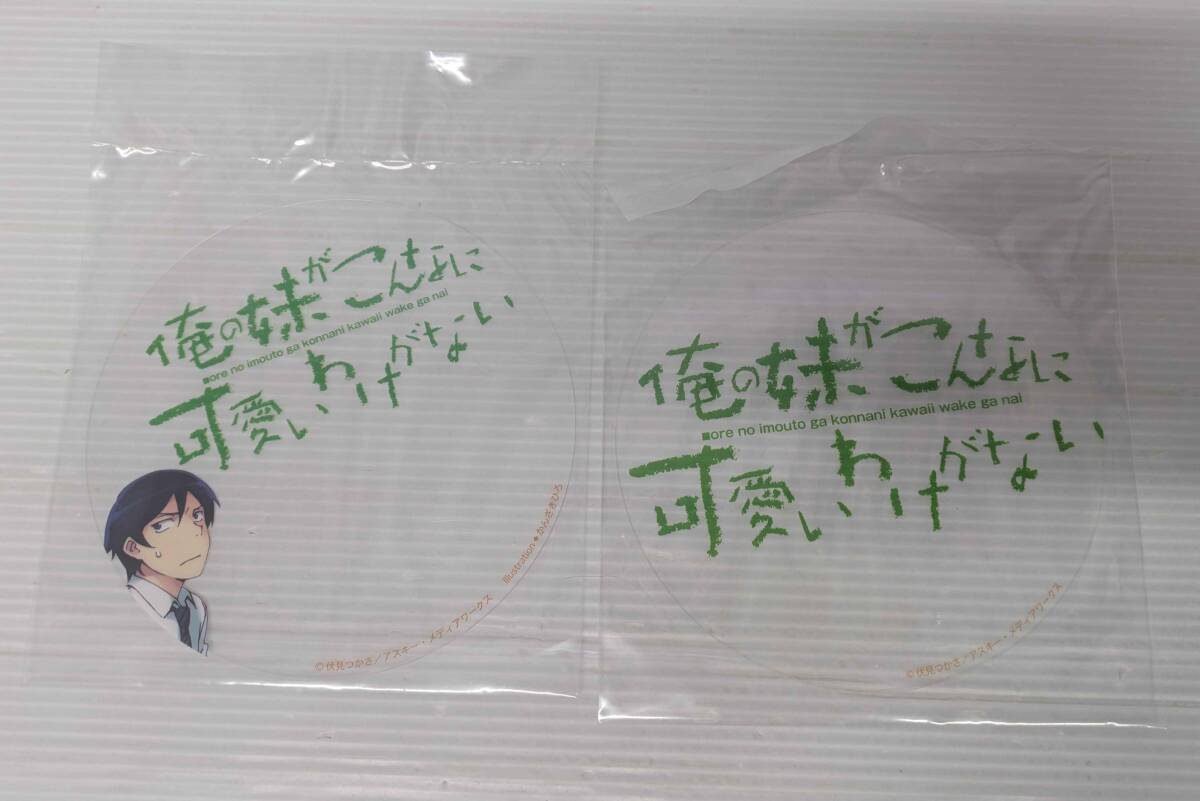 俺の妹がこんなに
ore no imouto ga konnani kawaii wake ga nai
可愛いわけがない
Illustration◆かんざきひろ
©伏見つかさ/アスキー・メディアワークス
俺の妹がこんなに
ore no imouto ga konnani kawaii wake ga nai
可愛いわけがない
©伏見つかさ/アスキー・メディアワークス